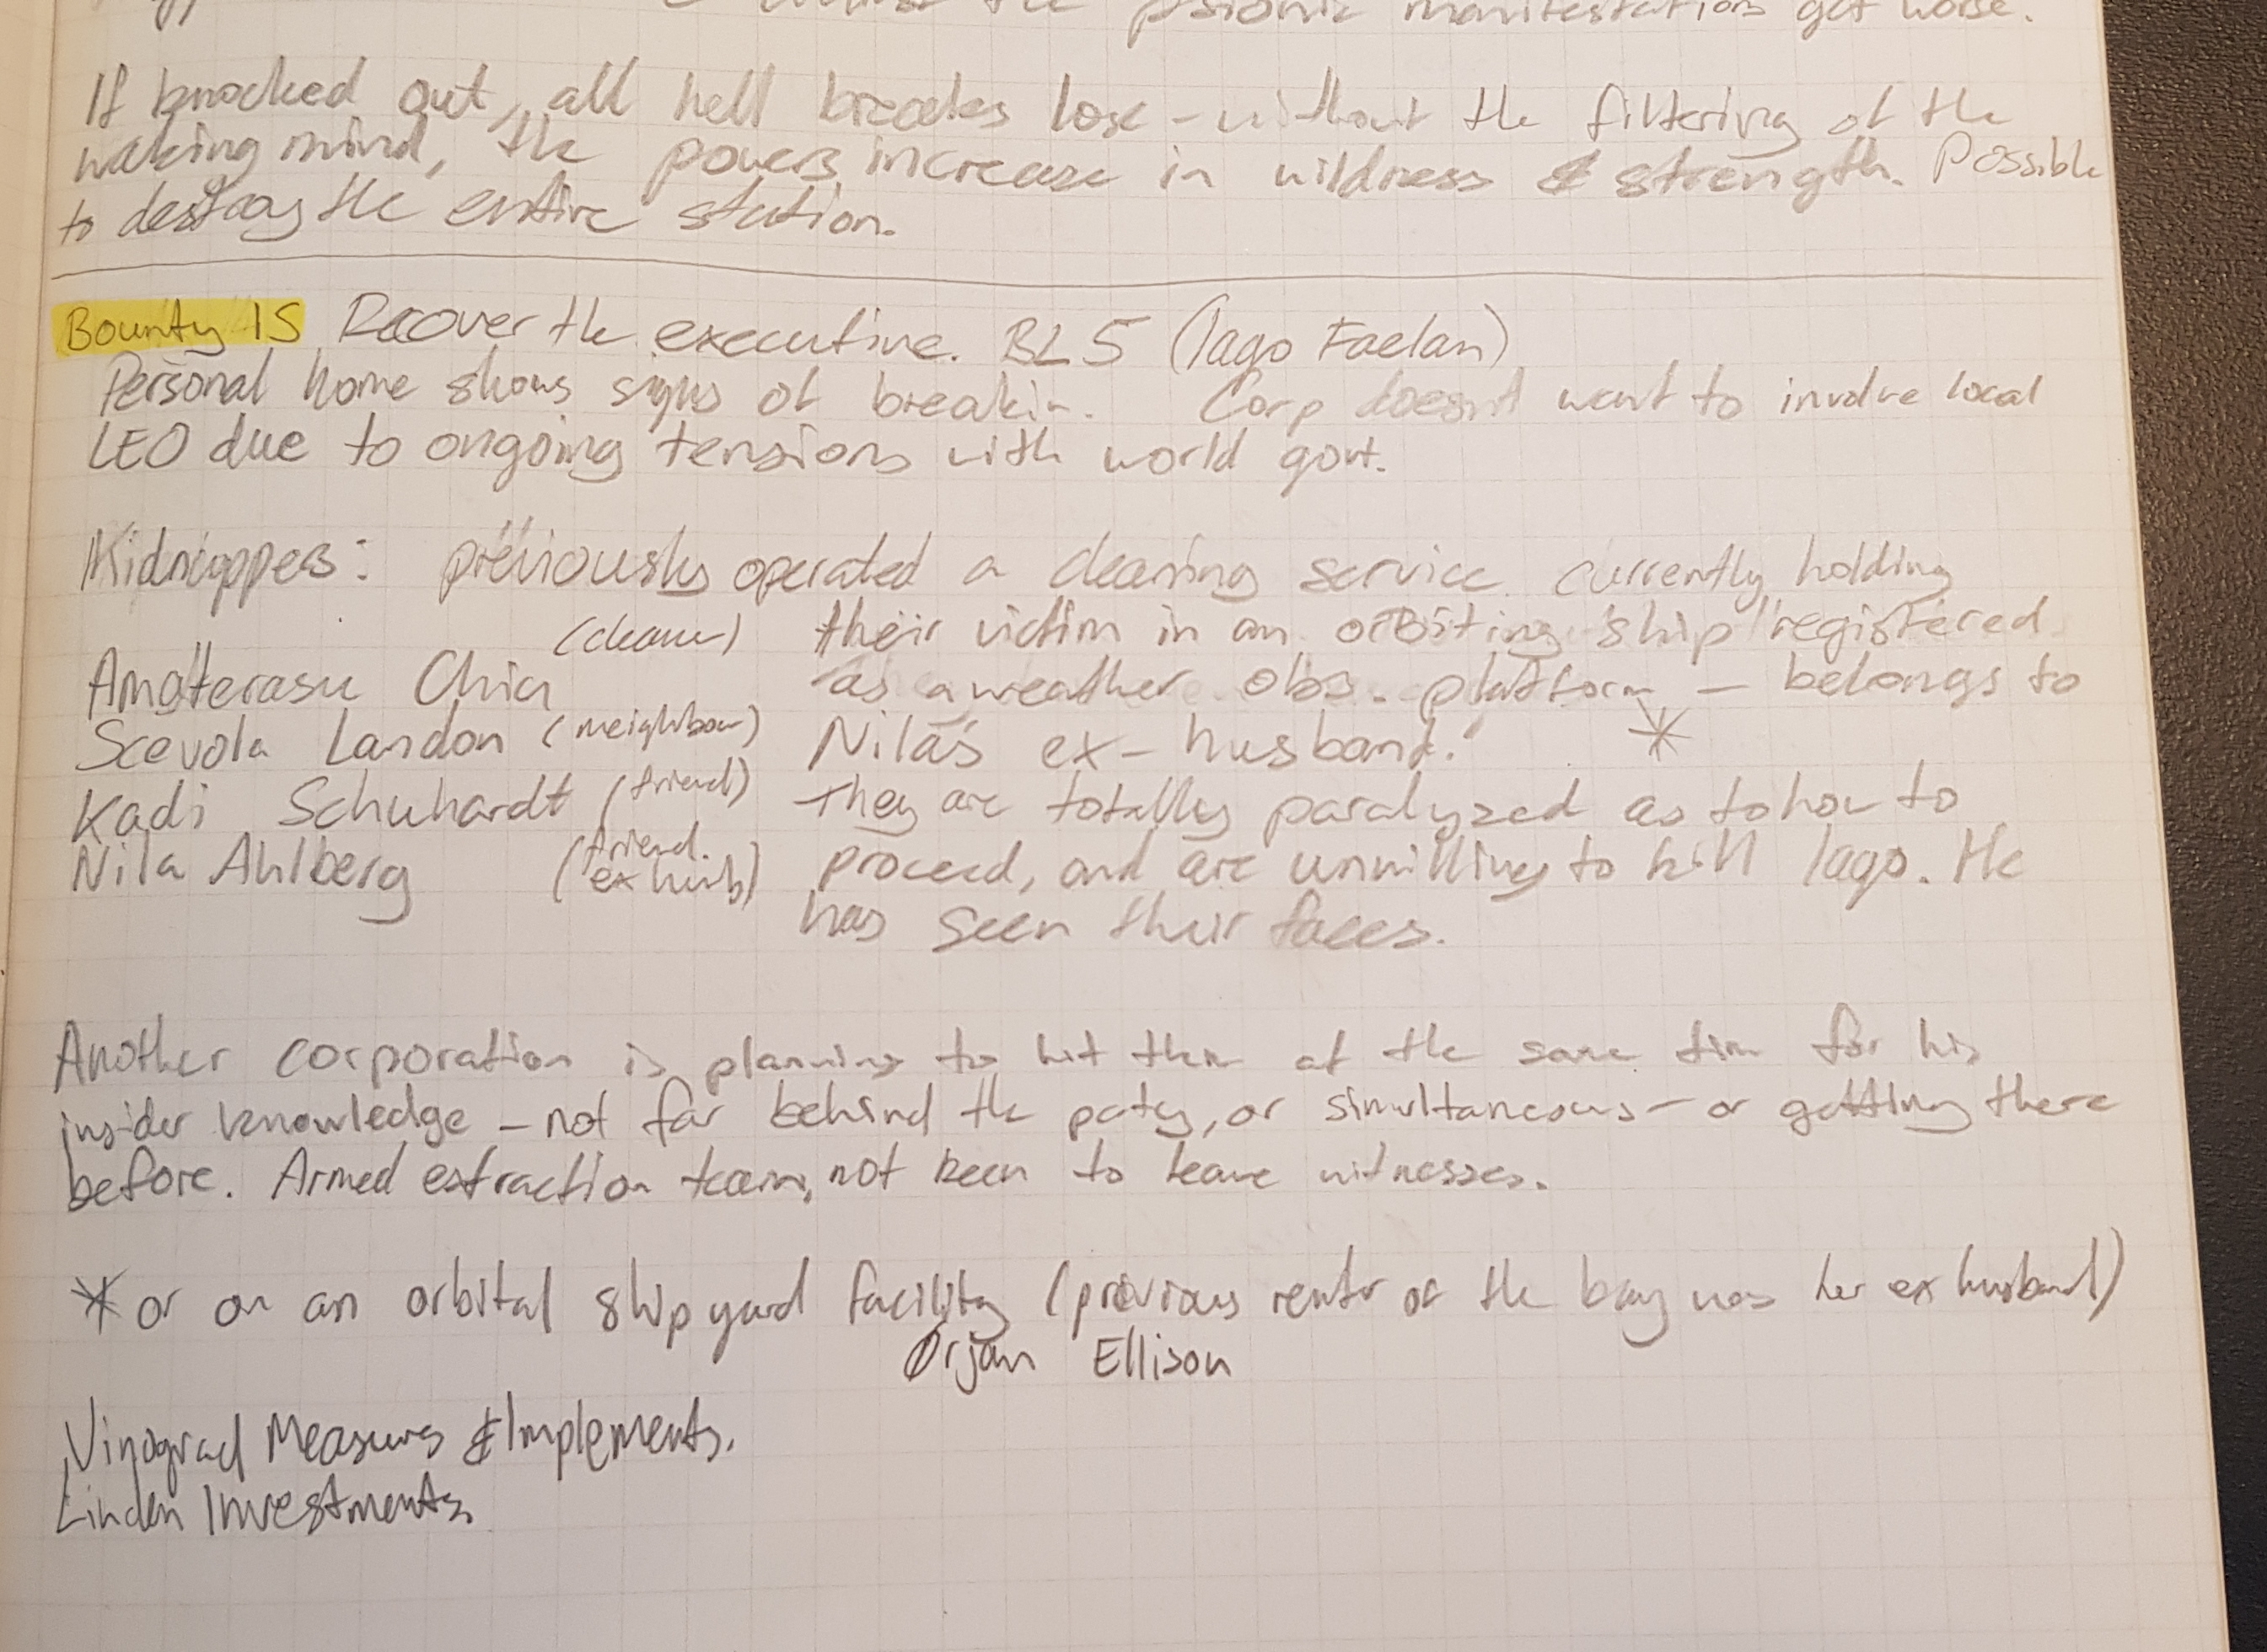 the psionic manifestations get worse.
If knocked out, all hell breaks lose - without the filtering of the
waking mind, the powers increase in wildness & strength. Possible
to destroy the entire station.
Bounty 15 Recover the executive. BL5 (Iago Faelan)
Personal home shows signs of breakin. Corp doesnt want to involve local
LEO due to ongoing tensions with world govt.
Kidnappers: previously operated a cleaning service. Currently holding
(cleaner) their victim in an orbiting "ship" registered
Amaterasu Chia as a weather obs. platform - belongs to
Scevola Landon (neighbour) Nila's ex-husband. *
Kadi Schuhardt (friend) They are totally paralyzed as to how to
Nila Ahlberg (friend. ex husb) proceed, and are unwilling to kill Iago. He
has seen their faces.
Another corporation is planning to hit them at the same time for his
insider knowledge - not far behind the party, or simultaneous - or getting there
before. Armed extraction team, not keen to leave witnesses.
* or on an orbital shipyard facility (previous renter of the bay was her ex husband)
Ørjan Ellison
Vinograd Measures & Implements.
Linden Investments.